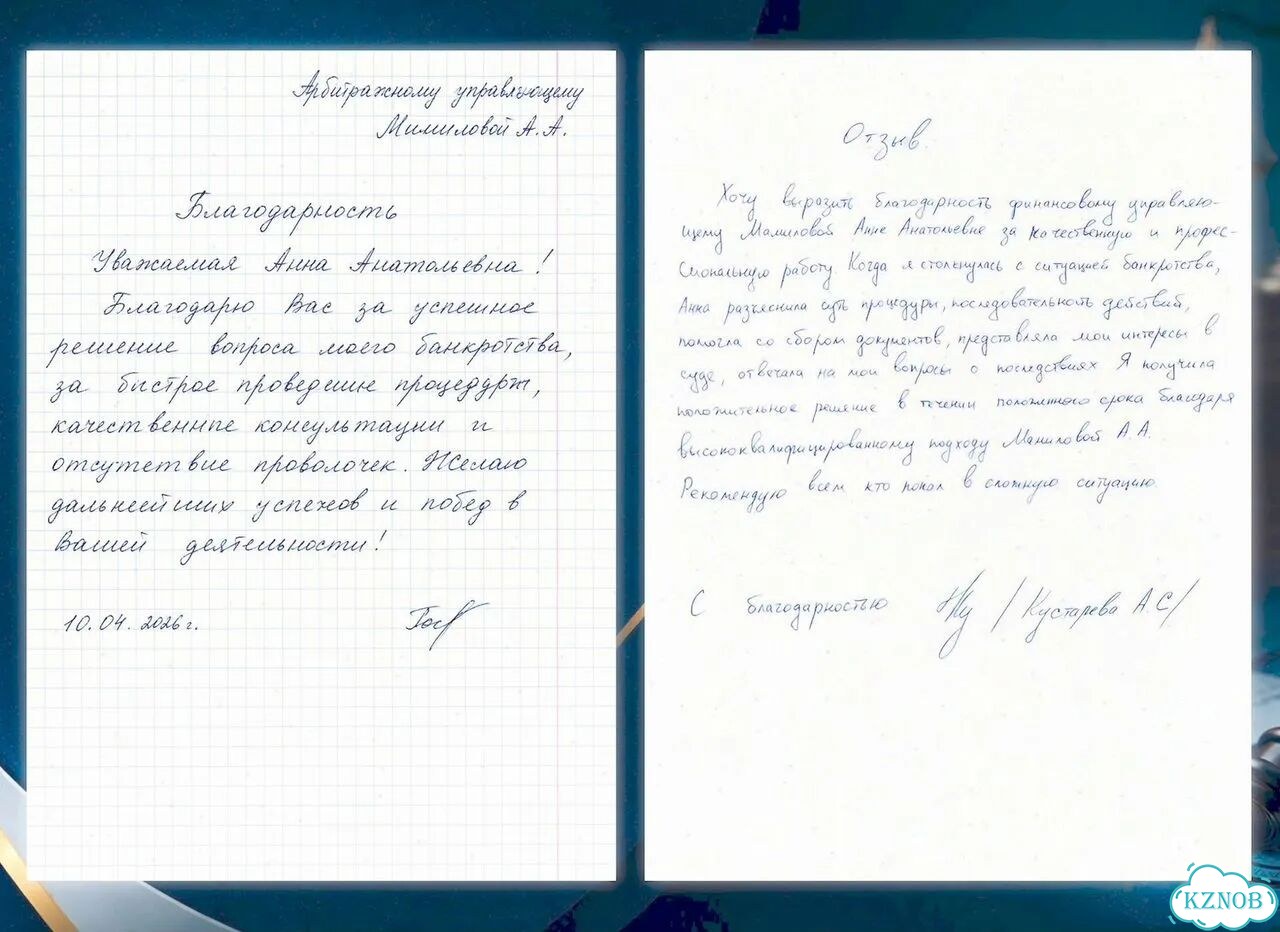 Арбитражному управляющему
Мимиловой А.А.
Благодарность
Уважаемая Анна Анатольевна!
Благодарю Вас за успешное
решение вопроса моего банкротства,
за быстрое проведение процедуры,
качественные консультации и
отсутствие проволочек. Желаю
дальнейших успехов и побед в
Вашей деятельности!
10.04.2026 г.
Отзыв.
Хочу выразить благодарность финансовому управляю-
щему Мамиловой Анне Анатольевне за качественную и профес-
сиональную работу. Когда я столкнулась с ситуацией банкротства,
Анна разъяснила суть процедуры, последовательность действий,
помогла со сбором документов, представляла мои интересы в
суде, отвечала на мои вопросы о последствиях Я получила
положительное решение в течении положенного срока благодаря
высококвалифицированному подходу Мамиловой А.А.
Рекомендую всем кто попал в сложную ситуацию
С благодарностью / Кустарева А.С/
KZNOB